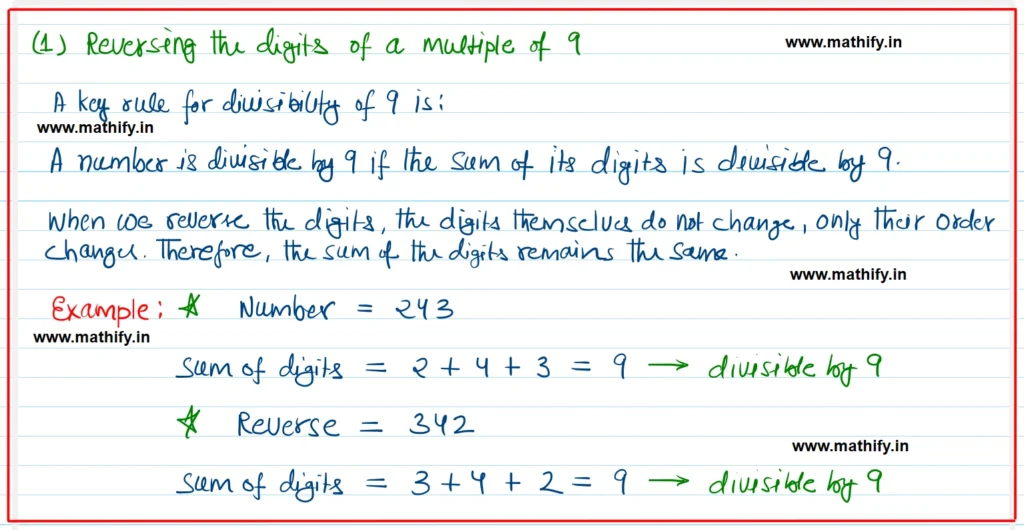 (1) Reversing the digits of a multiple of 9
www.mathify.in
A key rule for divisibility of 9 is:
www.mathify.in
A number is divisible by 9 if the sum of its digits is divisible by 9.
When we reverse the digits, the digits themselves do not change, only their order
changes. Therefore, the sum of the digits remains the same.
www.mathify.in
Example: ☆ Number = 243
www.mathify.in
Sum of digits = 2 + 4 + 3 = 9 → divisible by 9
☆ Reverse = 342
www.mathify.in
Sum of digits = 3 + 4 + 2 = 9 → divisible by 9